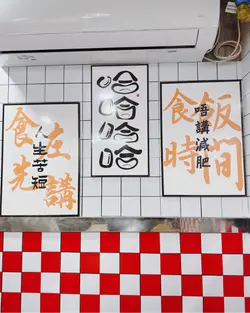 人生苦短
食左
先講
哈哈哈哈
食飯
時間
唔講減肥